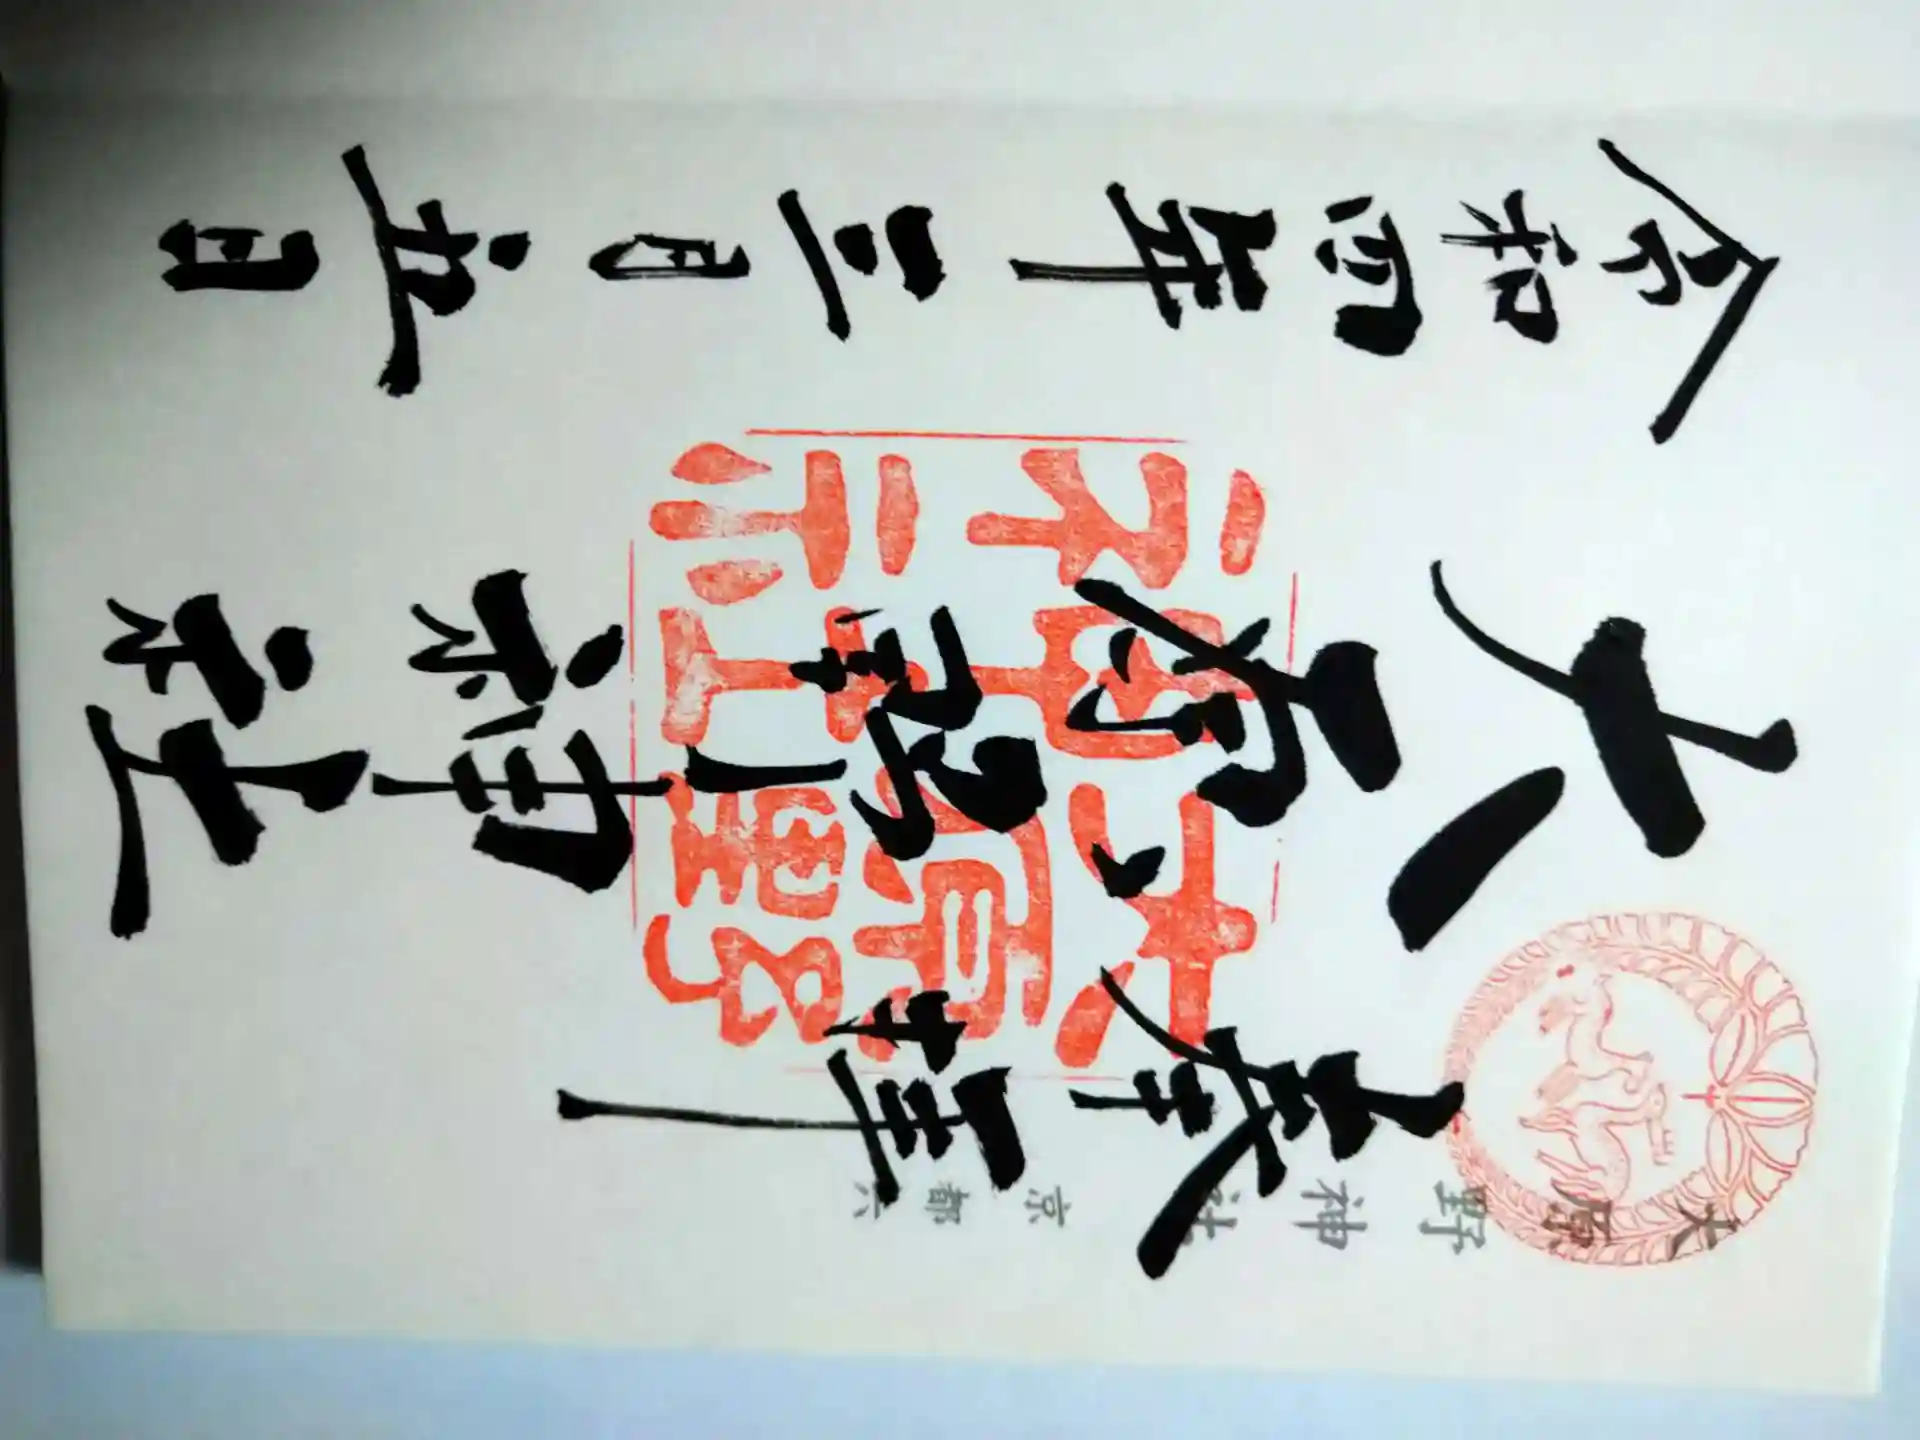 奉拝
大原野神社
令和四年三月五日
大原野神社
大原野神社
京都